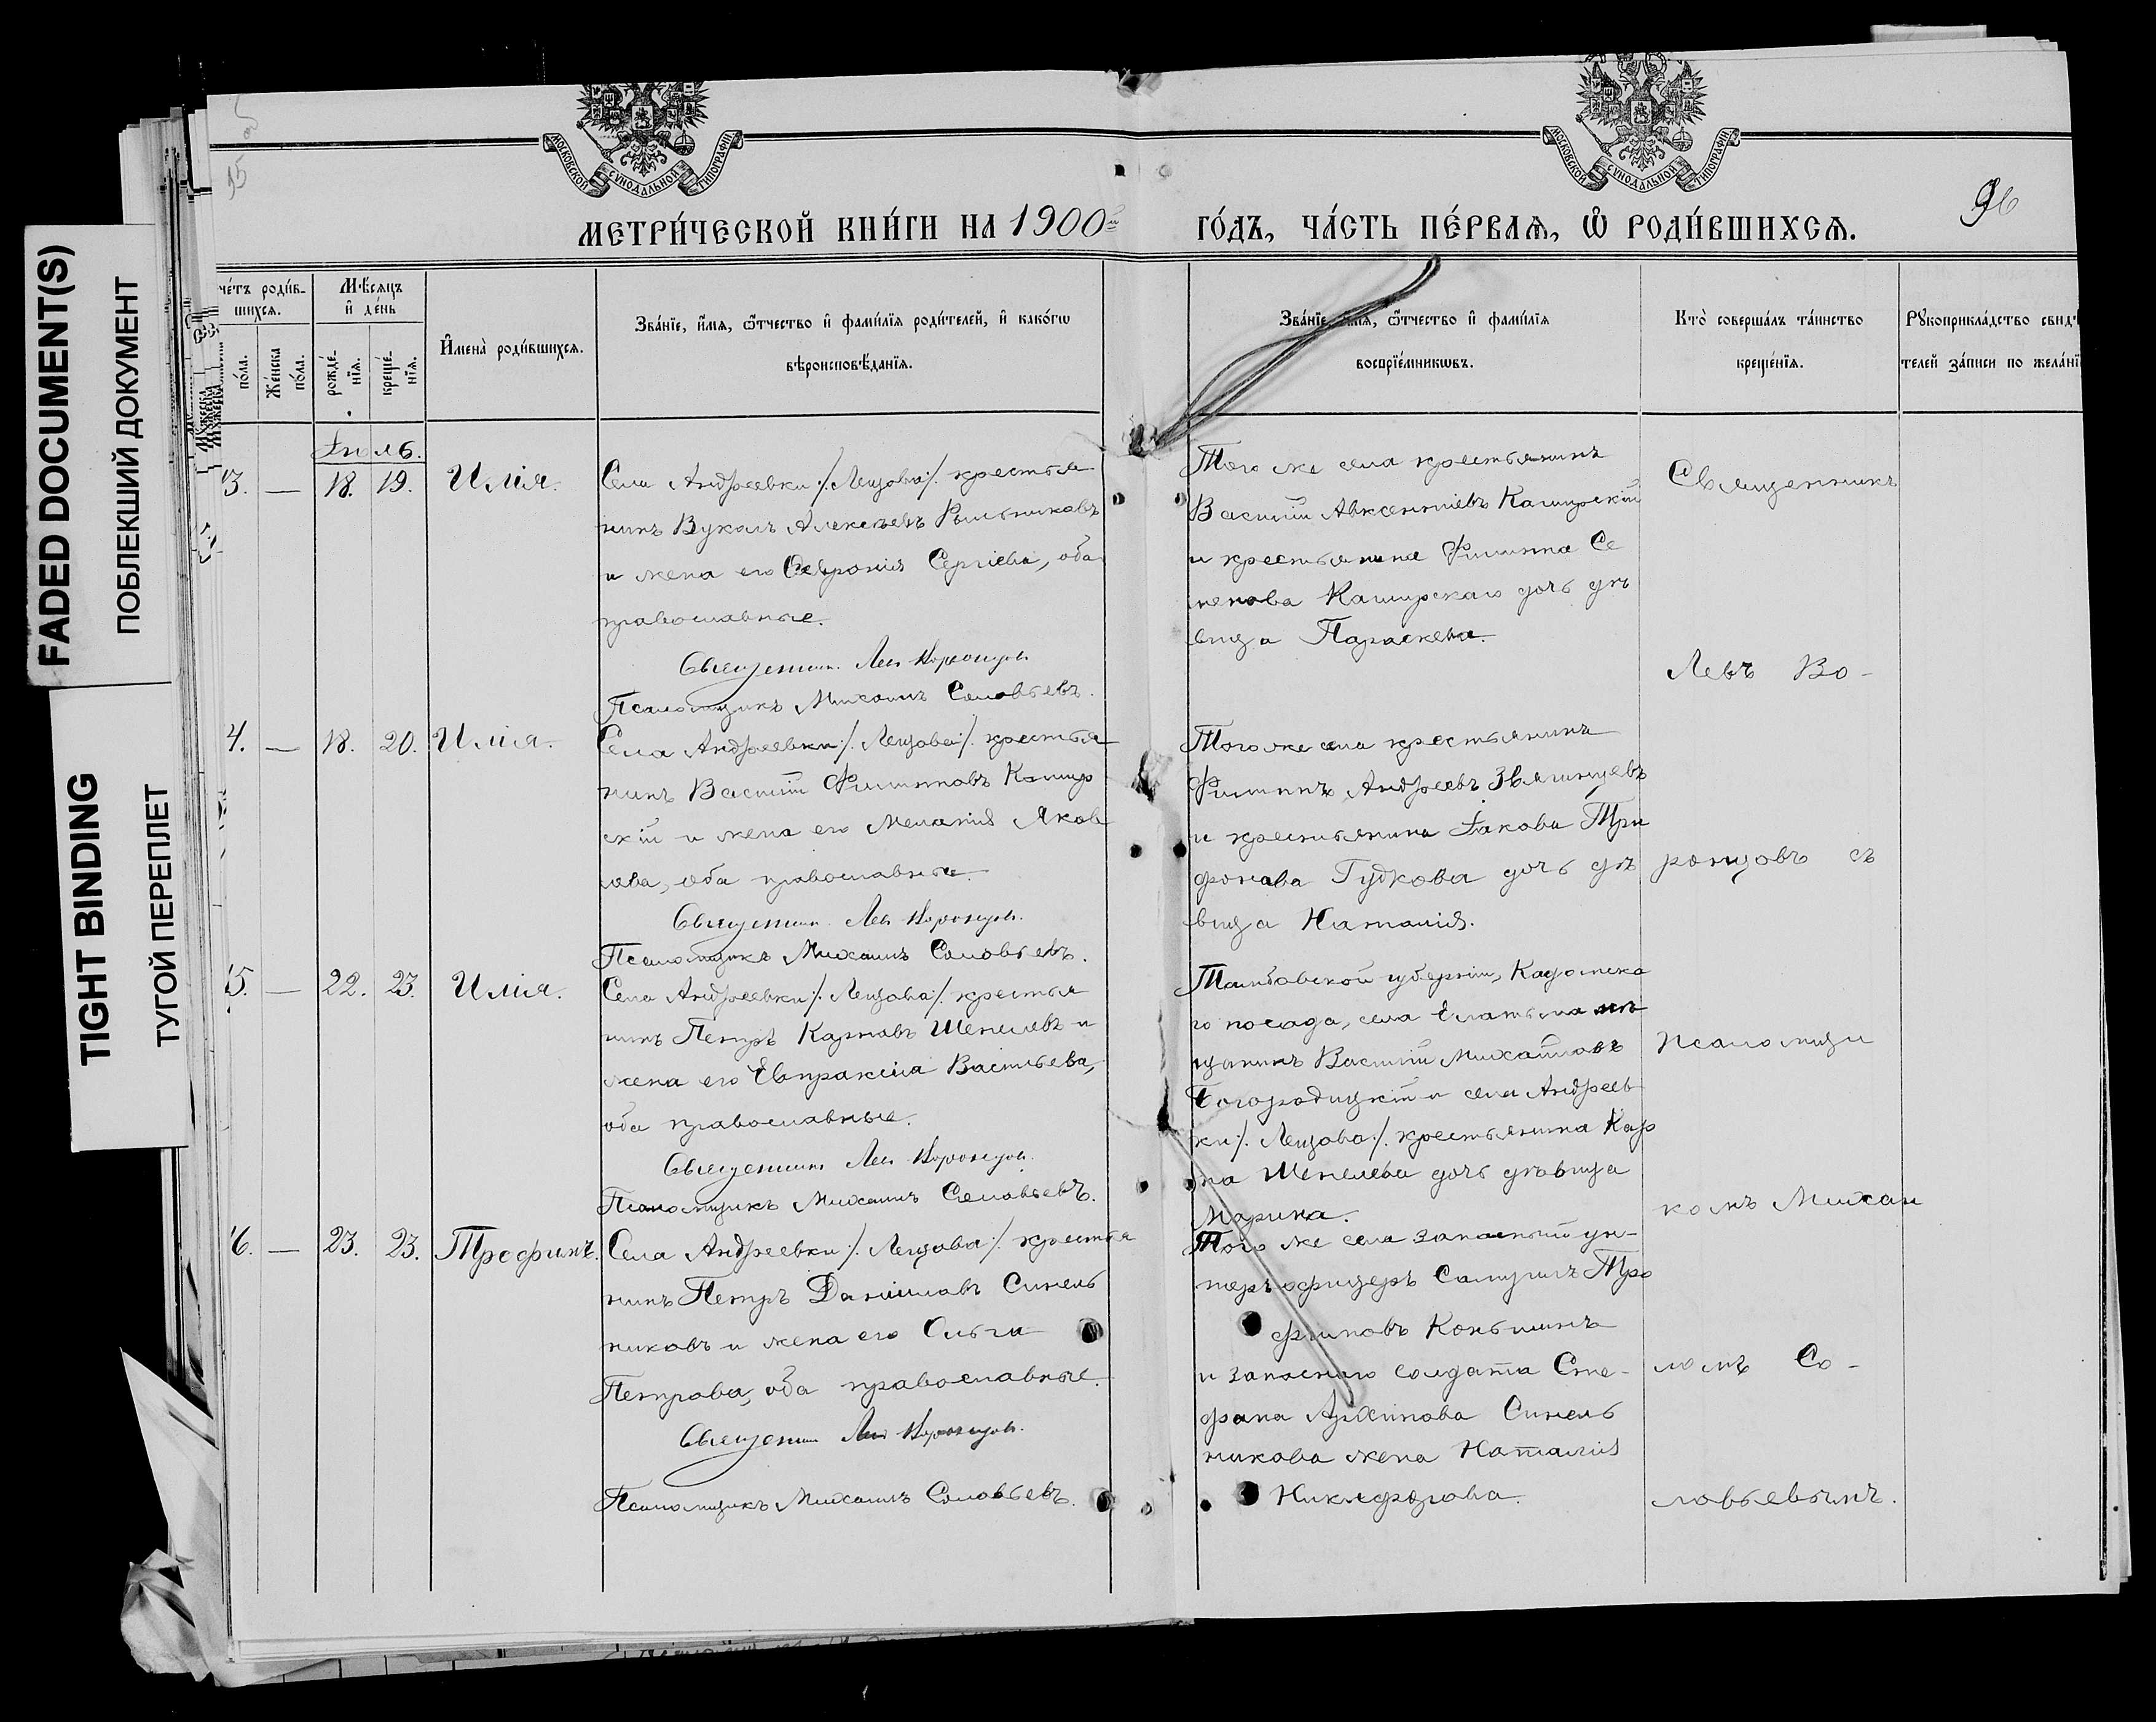 FADED DOCUMENT(S)
ПОБЛЕКШИЙ ДОКУМЕНТ
TIGHT BINDING
ТУГОЙ ПЕРЕПЛЕТ
МОСКОВСКОЙ СУНОДАЛЬНОЙ ТИПОГРАФІИ
МОСКОВСКОЙ СУНОДАЛЬНОЙ ТИПОГРАФІИ
96
МЕТРИ́ЧЕСКОЙ КНИ́ГИ НА 1900й
ГО́ДЪ, ЧА́СТЬ ПЕ́РВАѦ, Ѿ РОДИ́ВШИХСѦ.
че́тъ роди́в-
шихсѧ.
Мѣ́сѧцъ
и҆ де́нь
по́ла.
Же́нска
по́ла.
рожде́-
нїѧ.
креще́-
нїѧ.
И҆мена̀ роди́вшихсѧ.
Зва́нїе, и҆́мѧ, ѻ҆́тчество и҆ фами́лїѧ роди́телей, и҆ како́гѡ
вѣроисповѣ́данїѧ.
Зва́нїе, и҆́мѧ, ѻ҆́тчество и҆ фами́лїѧ
воспрїе́мникѡвъ.
Кто̀ соверша́лъ та́инство
креще́нїѧ.
Рꙋкоприкла́дство свидѣ́
телей за́писи по жела́нї
Іюль.
3. — 18. 19. Илія.
Села Андреевки /:Лещова:/ крестья
нинъ Вуколъ Алексѣевъ Рыльниковъ
и жена его Февронія Сергіева, оба
православные.
Священникъ Левъ Воронцовъ
Псаломщикъ Михаилъ Соловьевъ.
Того же села крестьянинъ
Василій Авксентіевъ Каширскій
и крестьянина Филиппа Се
менова Каширскаго дочь дѣ
вица Параскева.
4. — 18. 20. Илія.
Села Андреевки /:Лещова:/ крестья
нинъ Василій Филипповъ Кашир
скій и жена его Меланія Яков
лева, оба православные.
Священникъ Левъ Воронцовъ.
Псаломщикъ Михаилъ Соловьевъ.
Того же села крестьянинъ
Филиппъ Андреевъ Звягинцевъ
и крестьянина Іакова Три
фонова Гудкова дочь дѣ
вица Наталія.
5. — 22. 23. Илія.
Села Андреевки /:Лещова:/ крестья
нинъ Петръ Карповъ Шепелевъ и
жена его Евпраксія Васильева,
оба православные.
Священникъ Левъ Воронцовъ.
Псаломщикъ Михаилъ Соловьевъ.
Тамбовской губерніи, Кадомска
го посада, села Елатьма мѣ
щанинъ Василій Михайловъ
Богородицкій и села Андреев
ки /:Лещова:/ крестьянина Кар
па Шепелева дочь дѣвица
Марина.
6. — 23. 23. Трофимъ.
Села Андреевки /:Лещова:/ крестья
нинъ Петръ Даніиловъ Синель
никовъ и жена его Ольга
Петрова, оба православные.
Священникъ Левъ Воронцовъ.
Псаломщикъ Михаилъ Соловьевъ.
Того же села запасный ун-
теръ офицеръ Самуилъ Тро
фимовъ Коньшинъ
и запаснаго солдата Сте-
фана Архипова Синель
никова жена Наталія
Никифорова.
Священникъ
Левъ Во-
ронцовъ съ
псаломщи
комъ Михаи
ломъ Со-
ловьевымъ.